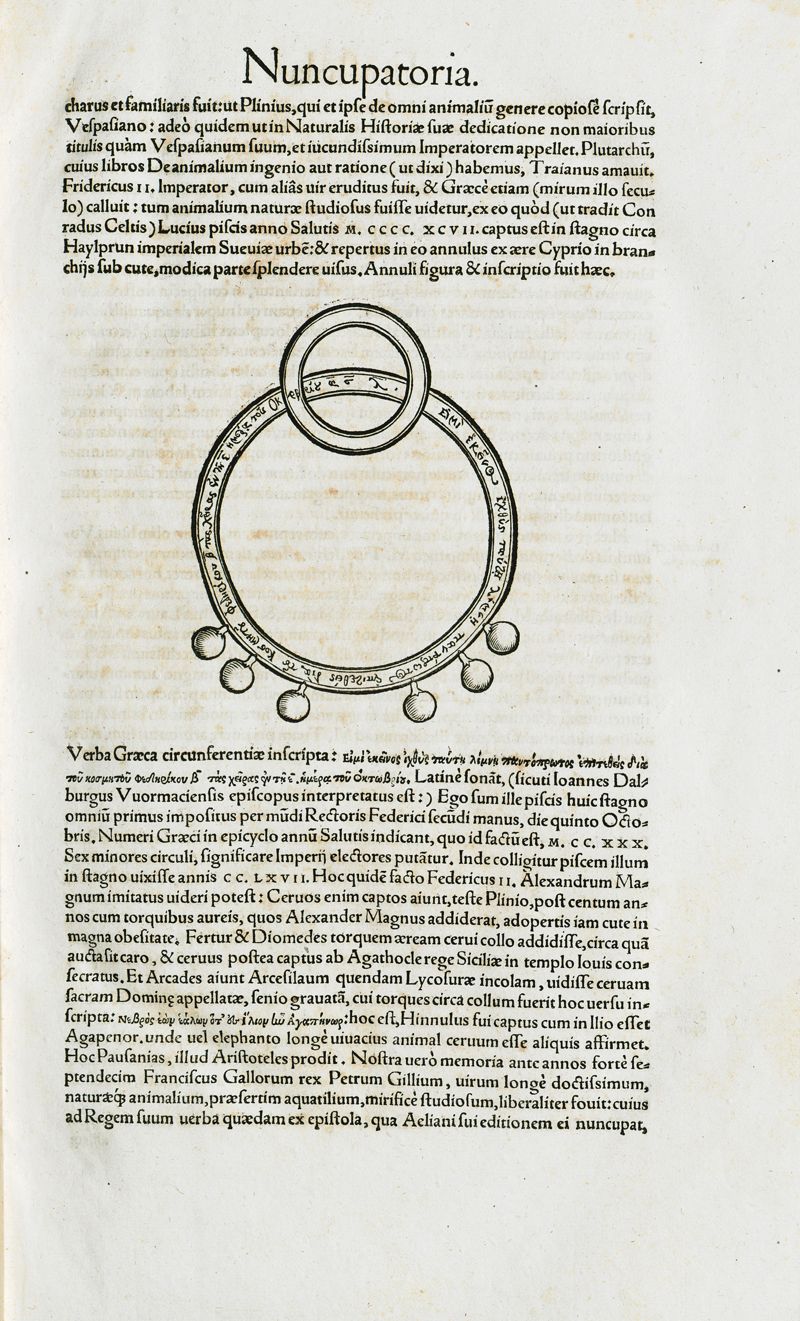 Nuncupatoria.
charus et familiaris fuit: ut Plinius, qui et ipſe de omni animaliū genere copioſè ſcripſit,
Veſpaſiano: adeò quidem ut in Naturalis Hiſtoriæ ſuæ dedicatione non maioribus
titulis quàm Veſpaſianum ſuum, et iucundiſsimum Imperatorem appellet. Plutarchū,
cuius libros De animalium ingenio aut ratione (ut dixi) habemus, Traianus amauit.
Fridericus II. Imperator, cum aliâs uir eruditus fuit, & Græcè etiam (mirum illo ſecu-
lo) calluit: tum animalium naturæ ſtudioſus fuiſſe uidetur, ex eo quòd (ut tradit Con
radus Celtis) Lucius piſcis anno Salutis M. CCCC. XCVII. captus eſt in ſtagno circa
Haylprun imperialem Sueuiæ urbē: & repertus in eo annulus ex ære Cyprio in bran-
chijs ſub cute, modica parte ſplendere uiſus. Annuli figura & inſcriptio fuit hæc.
Verba Græca circunferentiæ inſcripta: Εἰμὶ ἐκεῖνος ἰχθὺς ταύτῃ λίμνῃ παντόπρωτος ἐπιτεθεὶς διὰ
τοῦ κοσμητοῦ Φεδηρίκου β τὰς χεῖρας ἐν τῇ ε. ἡμέρᾳ τοῦ Ὀκτωβρίου. Latinè ſonāt, (ſicuti Ioannes Dal-
burgus Vuormacienſis epiſcopus interpretatus eſt:) Ego ſum ille piſcis huic ſtagno
omniū primus impoſitus per mūdi Rectoris Federici ſecūdi manus, die quinto Octo-
bris. Numeri Græci in epicyclo annū Salutis indicant, quo id factū eſt, M. CC. XXX.
Sex minores circuli, ſignificare Imperij electores putātur. Inde colligitur piſcem illum
in ſtagno uixiſſe annis CC. LXVII. Hoc quidē facto Federicus II. Alexandrum Ma-
gnum imitatus uideri poteſt: Ceruos enim captos aiunt, teſte Plinio, poſt centum an-
nos cum torquibus aureis, quos Alexander Magnus addiderat, adopertis iam cute in
magna obeſitate. Fertur & Diomedes torquem æream cerui collo addidiſſe, circa quā
aucta ſit caro, & ceruus poſtea captus ab Agathocle rege Siciliæ in templo Iouis con-
ſecratus. Et Arcades aiunt Arceſilaum quendam Lycoſuræ incolam, uidiſſe ceruam
ſacram Dominę appellatæ, ſenio grauatā, cui torques circa collum fuerit hoc uerſu in-
ſcripta: Νεβρὸς ἐὼν ἑάλων ὅτ' ἐν Ἰλίῳ ἦν Ἀγαπήνωρ: hoc eſt, Hinnulus fui captus cum in Ilio eſſet
Agapenor. unde uel elephanto longè uiuacius animal ceruum eſſe aliquis affirmet.
Hoc Pauſanias, illud Ariſtoteles prodit. Noſtra uerò memoria ante annos fortè ſe-
ptendecim Franciſcus Gallorum rex Petrum Gillium, uirum longè doctiſsimum,
naturæq́; animalium, præſertim aquatilium, mirificè ſtudioſum, liberaliter fouit: cuius
ad Regem ſuum uerba quædam ex epiſtola, qua Aeliani ſui editionem ei nuncupat,